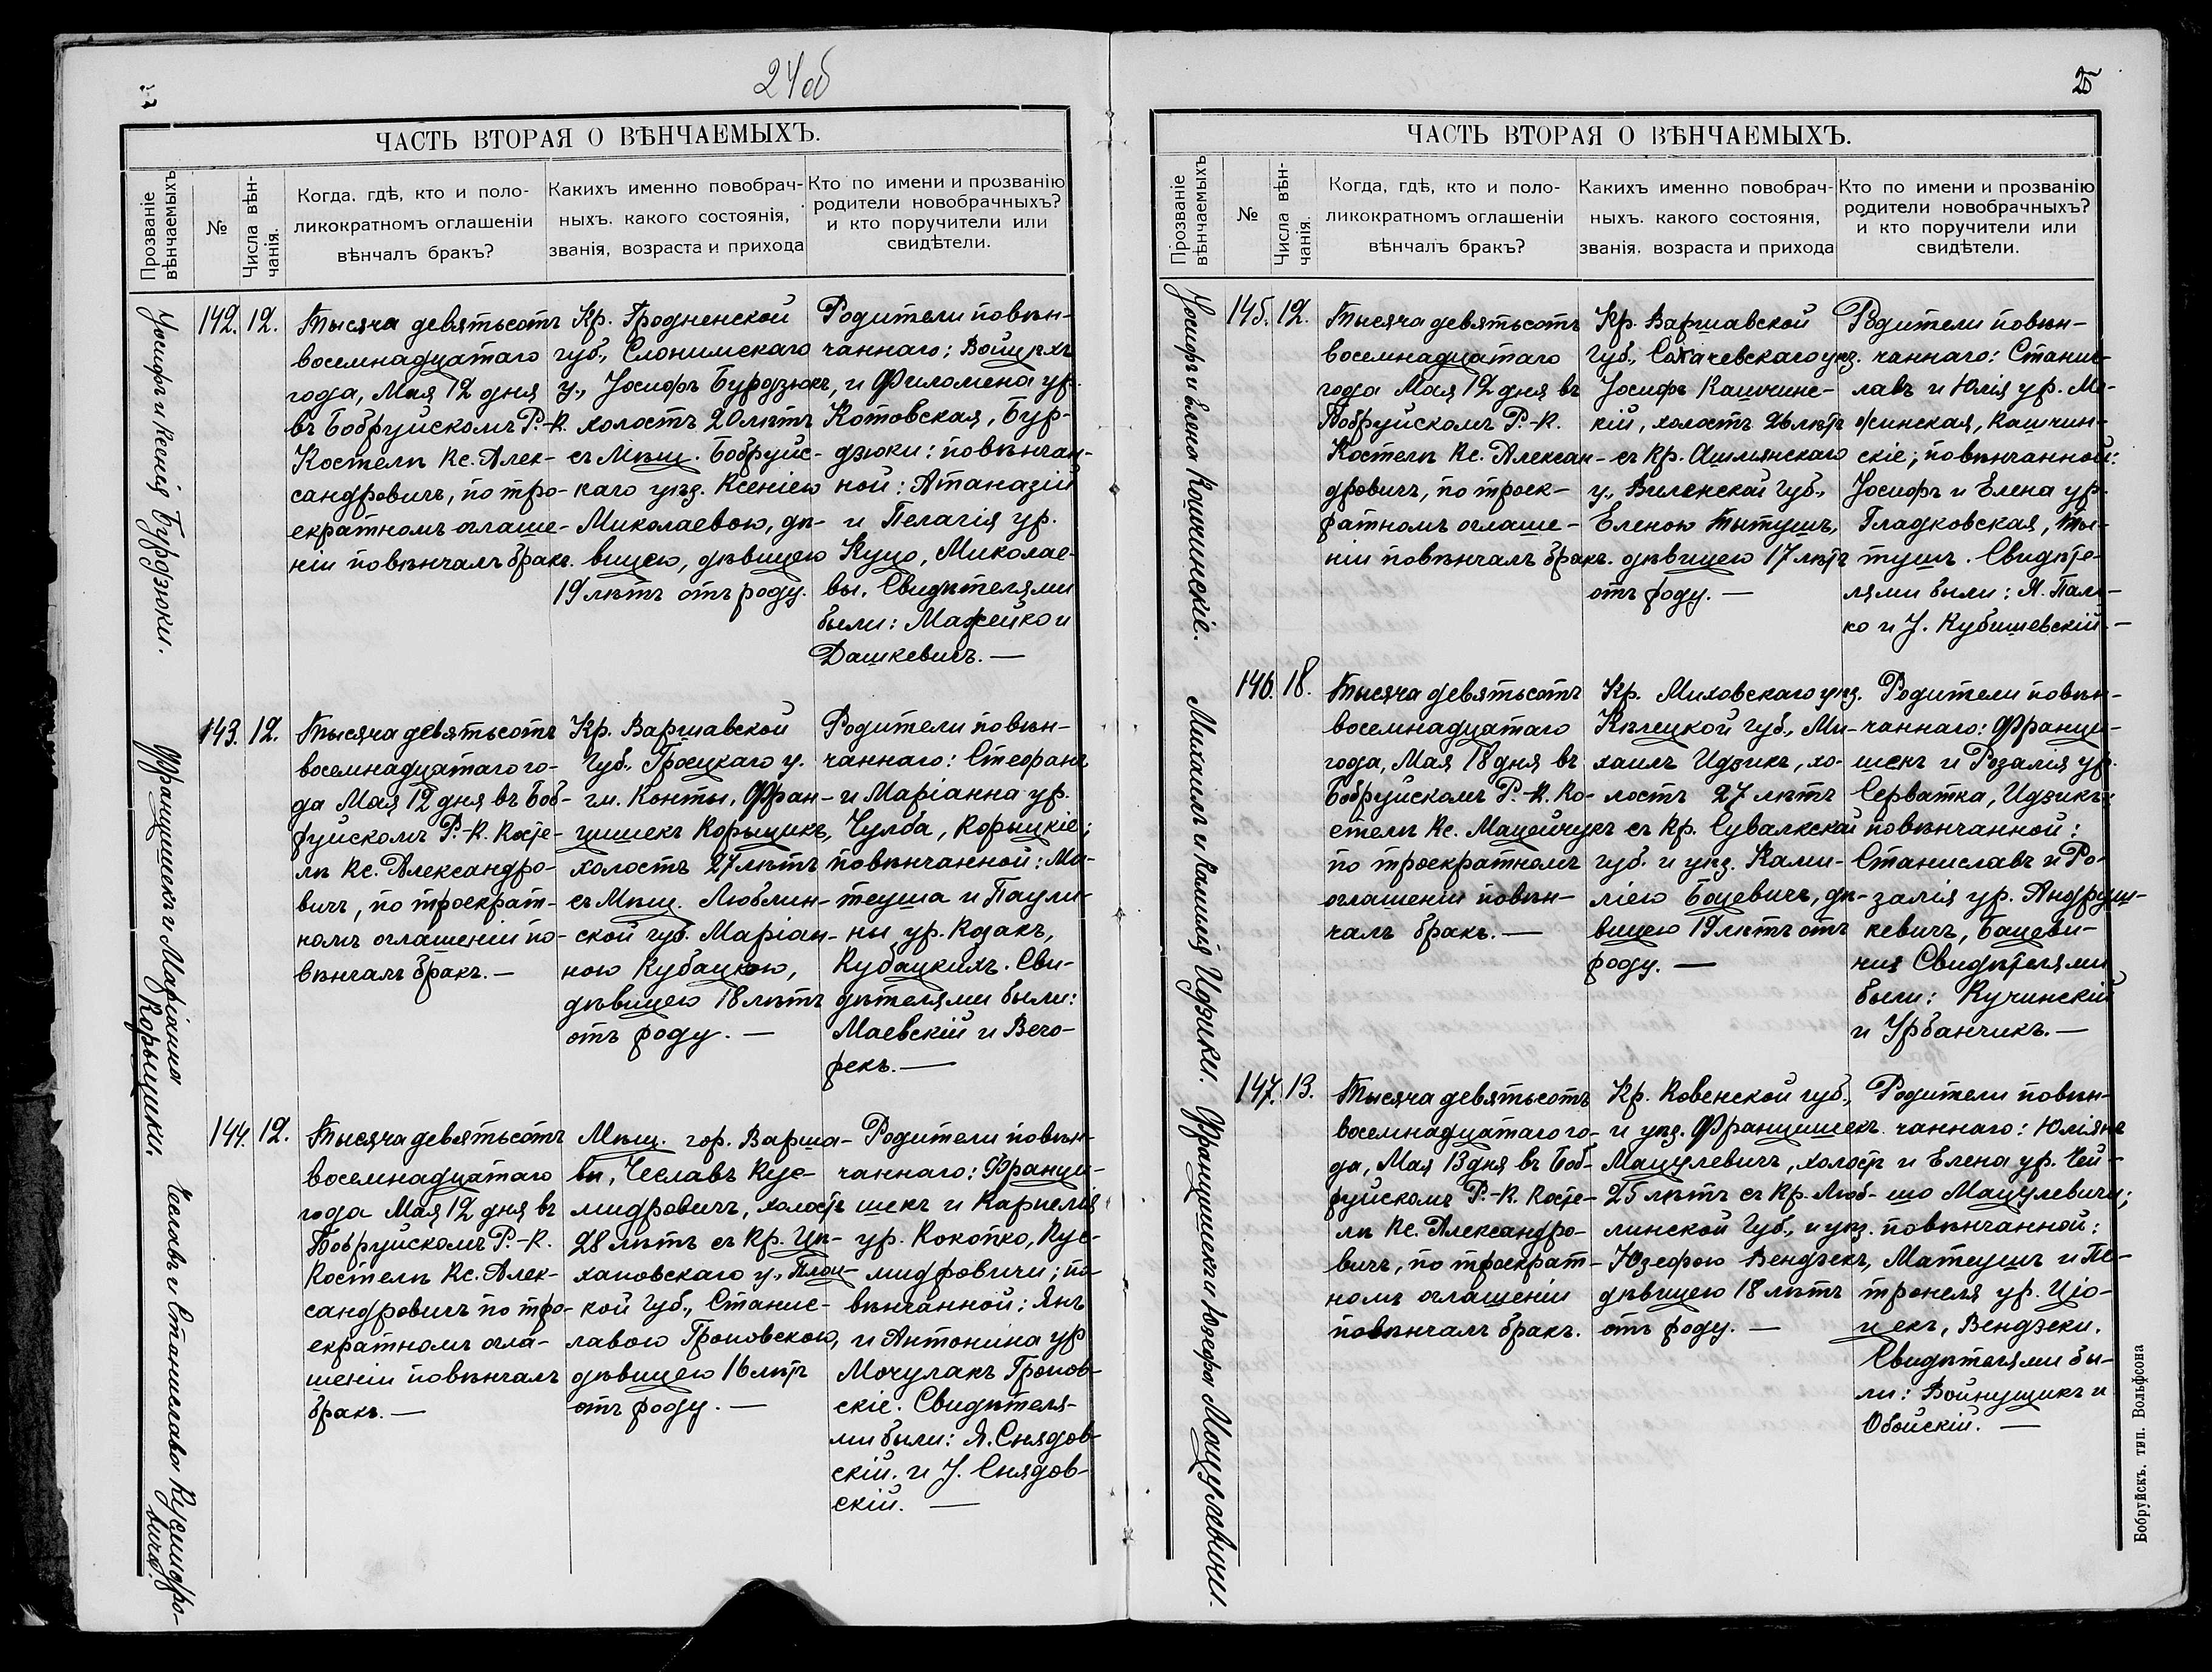 24об
ЧАСТЬ ВТОРАЯ О ВѢНЧАЕМЫХЪ.
Прозваніе вѣнчаемыхъ
№
Числа вѣн-
чанія.
Когда, гдѣ, кто и поло-
ликократномъ оглашеніи
вѣнчалъ бракъ?
Какихъ именно повобрач-
ныхъ. какого состоянія,
званія, возраста и прихода
Кто по имени и прозванію
родители новобрачныхъ?
и кто поручители или
свидѣтели.
Іосифъ и Ксенія Бурдзюки.
142. 12.
Тысяча девятьсотъ
восемнадцатаго
года, Мая 12 дня
въ Бобруйскомъ Р.-К.
Костелѣ Кс. Алек-
сандровичъ, по тро-
екратномъ оглаше-
ніи повѣнчалъ бракъ.
Кр. Гродненской
губ., Слонимскаго
у., Іосифъ Бурдзюкъ,
холостъ 20 лѣтъ
съ Мѣщ. Бобруйс-
каго уѣз. Ксеніею
Миколаевою, дѣ-
вицею, дѣвицею
19 лѣтъ отъ роду.
Родители повѣн-
чаннаго: Войцѣхъ
и Филомена ур.
Котовская, Бур-
дзюки: повѣнчан-
ной: Атаназій
и Пелагія ур.
Куцо, Миколае-
вы. Свидѣтелями
были: Мажейко и
Дашкевичъ. —
Францишекъ и Маріанна
Корыцики.
143. 12.
Тысяча девятьсотъ
восемнадцатаго го-
да Мая 12 дня въ Боб-
руйскомъ Р.-К. Косте-
лѣ Кс. Александро-
вичъ, по троекрат-
номъ оглашеніи по-
вѣнчалъ бракъ. —
Кр. Варшавской
Губ., Гроецкаго у.
гм. Конты, Фран-
цишекъ Корыцикъ,
холостъ 27 лѣтъ
съ Мѣщ. Люблин-
ской губ. Маріан-
ною Кубацкою,
дѣвицею 18 лѣтъ
отъ роду. —
Родители повѣн-
чаннаго: Стефанъ
и Маріанна ур.
Чулба, Корыцкіе;
повѣнчанной: Ма-
теуша и Паули-
ны ур. Козакъ,
Кубацкихъ. Сви-
дѣтелями были:
Маевскій и Вечо-
рекъ. —
Чеславъ и Станислава Кусмидро-
вичи.
144. 12.
Тысяча девятьсотъ
восемнадцатаго
года Мая 12 дня въ
Бобруйскомъ Р.-К.
Костелѣ Кс. Алек-
сандровичъ по тро-
екратномъ огла-
шеніи повѣнчалъ
бракъ. —
Мѣщ. гор. Варша-
вы, Чеславъ Кус-
мидровичъ, холостъ
28 лѣтъ съ Кр. Цѣ-
хановскаго у., Плоц-
кой Губ., Станис-
лавою Гроповскою,
дѣвицею 16 лѣтъ
отъ роду. —
Родители повѣн-
чаннаго: Франци-
шекъ и Карнелія
ур. Кокопко, Кус-
мидровичи; по-
вѣнчанной: Янъ
и Антонина ур
Мочулакъ Гропов-
скіе. Свидѣтеля-
ми были: Я. Снядов-
скій. и І. Снядов-
скій. —
25
ЧАСТЬ ВТОРАЯ О ВѢНЧАЕМЫХЪ.
Прозваніе вѣнчаемыхъ
№
Числа вѣн-
чанія.
Когда, гдѣ, кто и поло-
ликократномъ оглашеніи
вѣнчалъ бракъ?
Какихъ именно повобрач-
ныхъ. какого состоянія,
званія. возраста и прихода
Кто по имени и прозванію
родители новобрачныхъ?
и кто поручители или
свидѣтели.
Іосифъ и Елена Кашчинскіе.
145. 12.
Тысяча девятьсотъ
восемнадцатаго
года Мая 12 дня въ
Бобруйскомъ Р.-К.
Костелѣ Кс. Алексан-
дровичъ, по троек-
ратномъ оглаше-
ніи повѣнчалъ бракъ.
Кр. Варшавской
Губ., Сохачевскаго уѣз.
Іосифъ Кашчинс-
кій, холостъ 26 лѣтъ
съ Кр. Ошмянскаго
у., Виленской Губ.,
Еленою Тытушъ,
дѣвицею 17 лѣтъ
отъ роду. —
Родители повѣн-
чаннаго: Станис-
лавъ и Юлія ур. Мо-
жинская, Кашчин-
скіе; повѣнчанной:
Іосифъ и Елена ур.
Гладковская, Ты-
тушъ. Свидѣте-
лями были: Я. Паль-
ко и І. Кубишевскій. —
Михаилъ и Камилія Идзики.
146. 18.
Тысяча девятьсотъ
восемнадцатаго
года, Мая 18 дня въ
Бобруйскомъ Р.-К. Ко-
стелѣ Кс. Мацейчукъ
по троекратномъ
оглашеніи повѣн-
чалъ бракъ. —
Кр. Миховскаго уѣз.
Кѣлецкой Губ., Ми-
хаилъ Идзикъ, хо-
лостъ 27 лѣтъ
съ Кр. Сувалкской
губ. и уѣз. Ками-
ліею Бацевичъ, дѣ-
вицею 19 лѣтъ отъ
роду. —
Родители повѣн-
чаннаго: Франци-
шекъ и Розалія ур.
Серватка, Идзикъ;
повѣнчанной:
Станиславъ и Ро-
залія ур. Андруш-
кевичъ, Бацеви-
чи Свидѣтелями
были: Кучинскій
и Урбанчикъ. —
Францишекъ и Юзефа Мацулевичи.
147. 13.
Тысяча девятьсотъ
восемнадцатаго го-
да, Мая 13 дня въ Боб-
руйскомъ Р.-К. Косте-
лѣ Кс. Александро-
вичъ, по троекрат-
номъ оглашеніи
повѣнчалъ бракъ.
Кр. Ковенской губ.,
и уѣз. Францишекъ
Мацулевичъ, холостъ
25 лѣтъ съ Кр. Люб-
линской Губ., и уѣз.
Юзефою Вендзекъ,
дѣвицею 18 лѣтъ
отъ роду. —
Родители повѣн-
чаннаго: Юліянъ
и Елена ур. Чей-
шо Мацулевичи;
повѣнчанной:
Матеушъ и Пе-
тронеля ур. Цю-
цекъ, Вендзеки.
Свидѣтелями бы-
ли: Войнущикъ и
Обойскій. —
Бобруйскъ. тип. Вольфсона